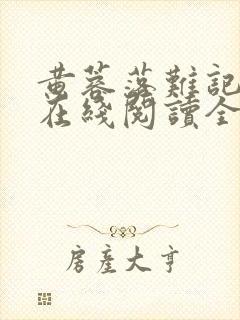 黄蓉落難記
在綫閱讀全
房產大亨